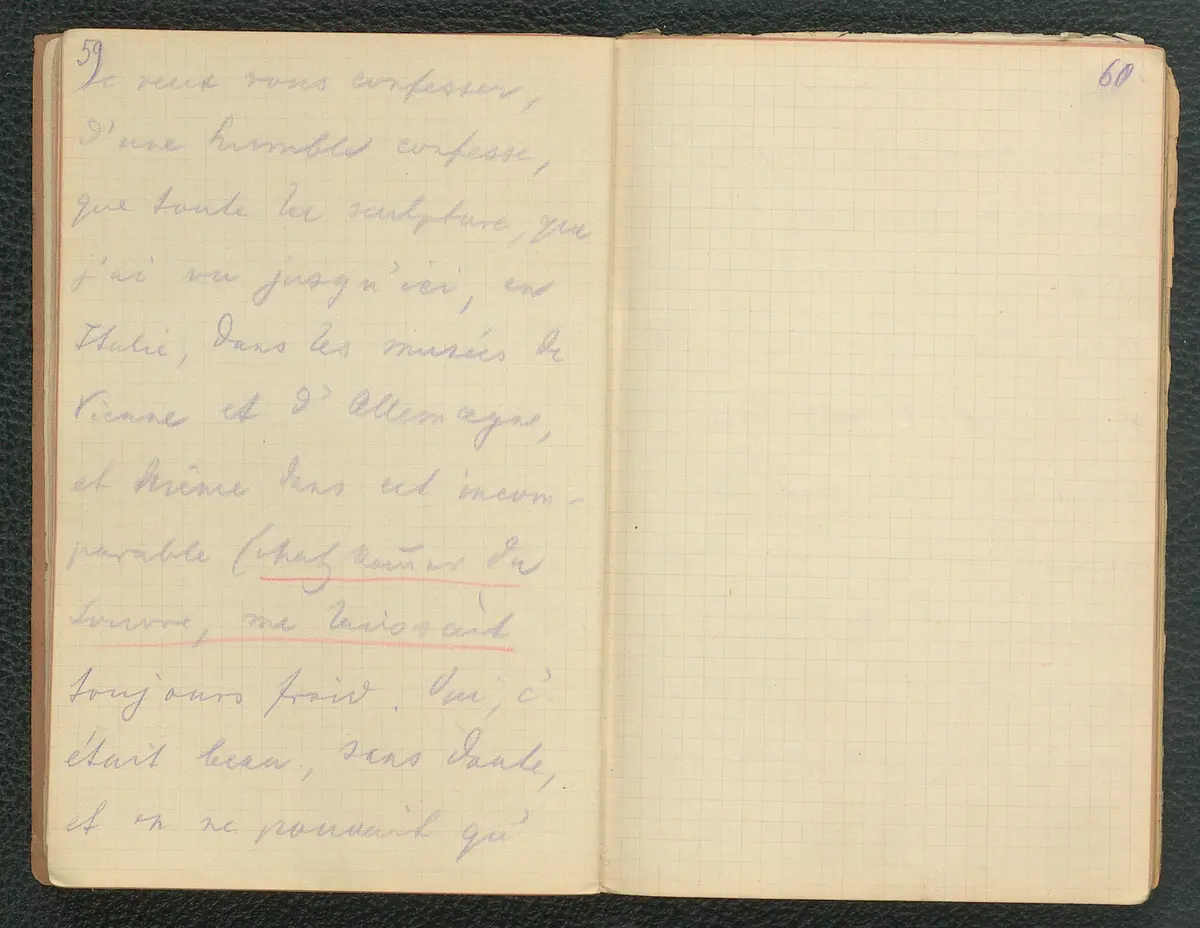 59
Je veux vous confesser,
d'une humble confesse,
que toute la sculpture, que
j'ai vu jusqu'ici, en
Italie, dans les musées de
Vienne et d'Allemagne,
et même dans cet incom-
parable (Schatzkam̄er du
Louvre, me laissait
toujours froid. Oui, c'
était beau, sans doute,
et on ne pouvait qu'
60